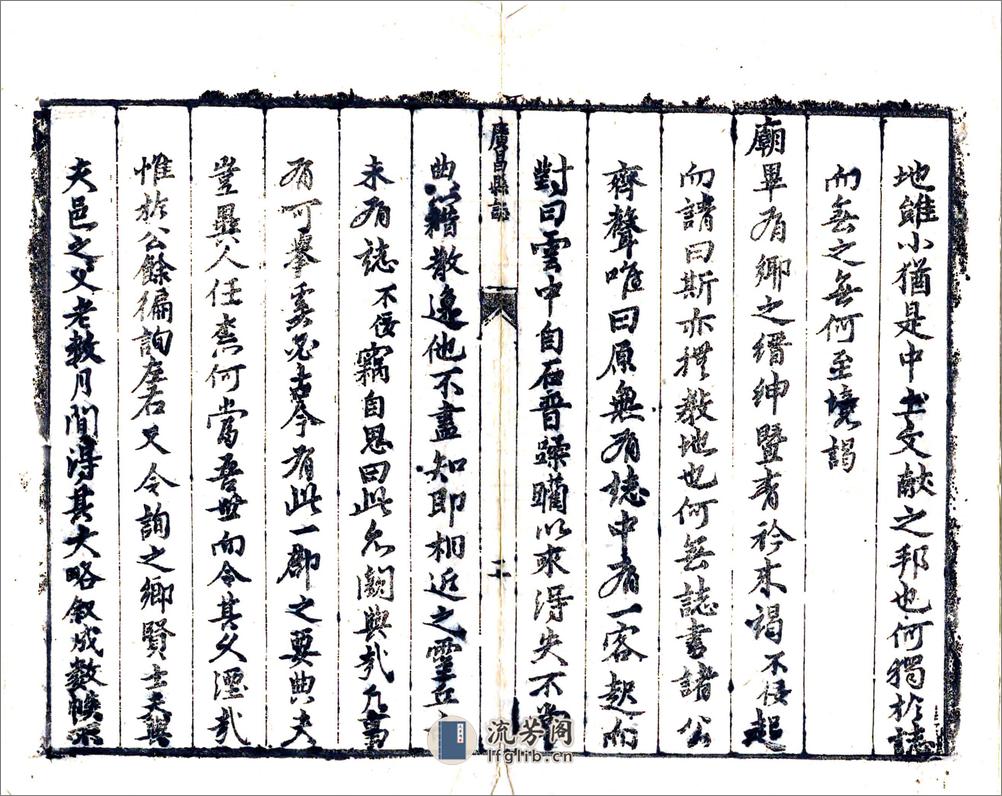 地雖小猶是中土文献之邦也何獨於誌
而無之無何至境謁
廟畢有鄉之縉紳暨青衿来謁不佞起
而請曰斯亦撰教地也何無誌書諸公
齊聲唯曰原無有誌中有一客起而
對曰雲中自石晉蹂躪以來得失不常
廣昌縣誌
二
典籍散逸他不盡知即相近之靈丘
未有誌不佞竊自思曰此名闕典哉凡事
有可擧奚必古今有此一郡之要典夫
豈異人任柰何當吾世而令其久湮哉
惟於公餘徧詢左右又令詢之鄉賢士夫與
夫邑之父老數月間得其大略叙成數帙
流芳阁
lfglib.cn